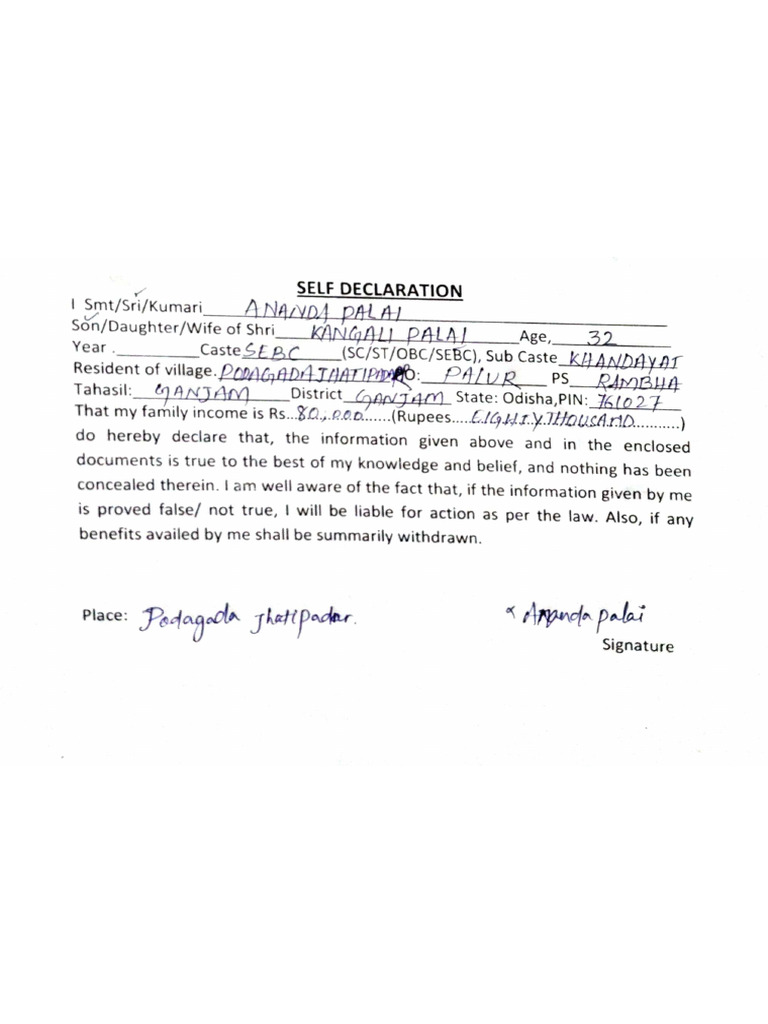 SELF DECLARATION
I Smt/Sri/Kumari ANANDA PALAI
Son/Daughter/Wife of Shri KANGALI PALAI Age, 32
Year . Caste SEBC (SC/ST/OBC/SEBC), Sub Caste KHANDAYAT
Resident of village. PODAGADA JHATIPADAR PO: PALUR PS RAMBHA
Tahasil: GANJAM District GANJAM State: Odisha,PIN: 761027
That my family income is Rs...80,000......(Rupees....EIGHTY THOUSAND...........)
do hereby declare that, the information given above and in the enclosed
documents is true to the best of my knowledge and belief, and nothing has been
concealed therein. I am well aware of the fact that, if the information given by me
is proved false/ not true, I will be liable for action as per the law. Also, if any
benefits availed by me shall be summarily withdrawn.
Place: Podagada Jhatipadar.
x Ananda palai
Signature